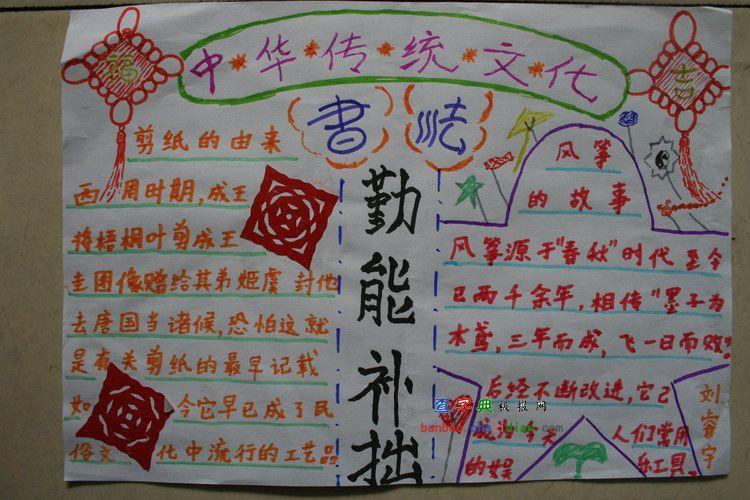 中华传统文化
福
吉
书法
剪纸的由来
西周时期,成王
将梧桐叶剪成王
圭图像赔给其弟姬虞 封他
去唐国当诸候,恐怕这就
是有关剪纸的最早记载
如今它早已成了民
俗文化中流行的工艺品
勤能补拙
风筝
的故事
风筝源于"春秋"时代 至今
已两千余年,相传"墨子为
木鸢,三年而成,飞一日而败"
后经不断改进,它已
成为今天人们常用
的娱乐工具。
刘睿宇
查字典板报网